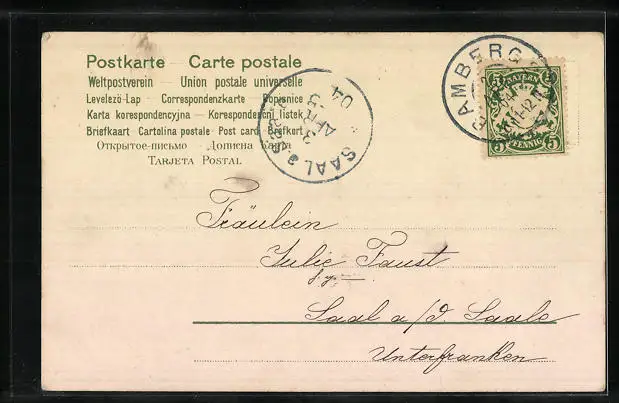 Postkarte — Carte postale
Weltpostverein — Union postale universelle
Levelező-Lap — Correspondenzkarte — Dopisnice
Karta korespondencyjna — Korespondenční lístek
Briefkaart Cartolina postale Post card Brefkort
Открытое-письмо — Дописна карта
Tarjeta Postal
SAAL a. Saale
3
APR
04
BAMBERG
BAYERN
5 5
5 5
PFENNIG
Fräulein
Julie Faust
Saal a/d. Saale
Unterfranken